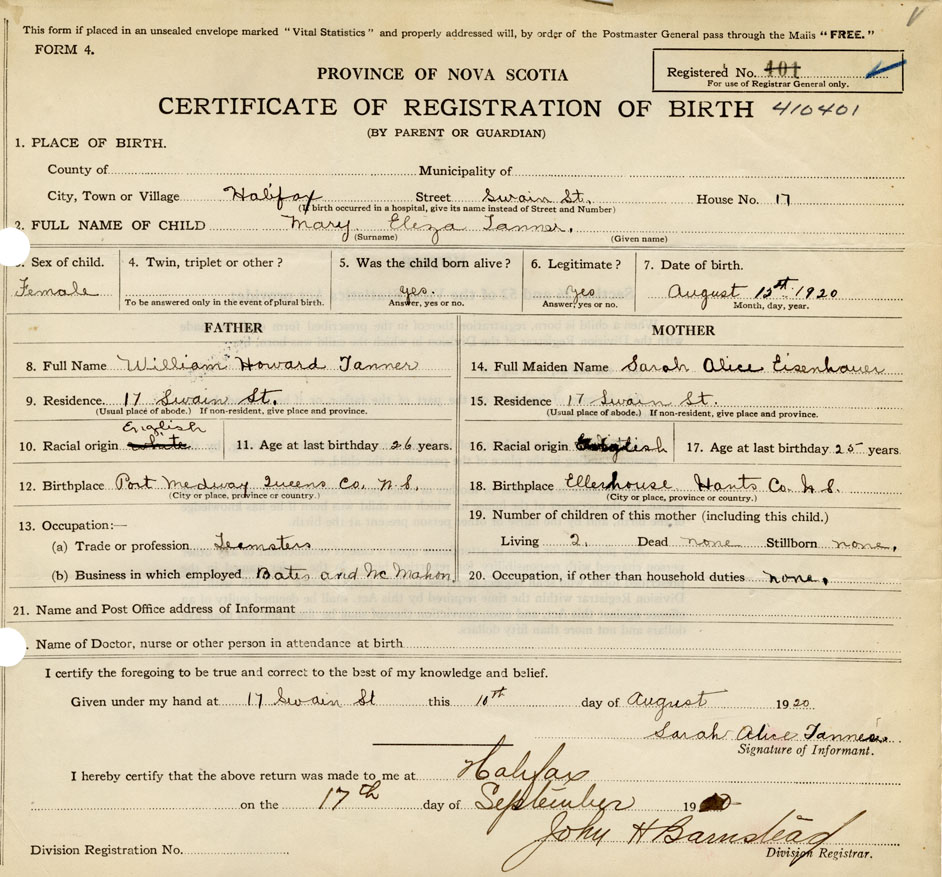 This form if placed in an unsealed envelope marked "Vital Statistics" and properly addressed will, by order of the Postmaster General pass through the Mails "FREE."
FORM 4.
PROVINCE OF NOVA SCOTIA
Registered No. 101
For use of Registrar General only.
CERTIFICATE OF REGISTRATION OF BIRTH 410401
(BY PARENT OR GUARDIAN)
1. PLACE OF BIRTH.
County of Municipality of
City, Town or Village Halifax Street Swain St. House No. 17
(If birth occurred in a hospital, give its name instead of Street and Number)
2. FULL NAME OF CHILD Mary Eliza Tanner.
(Surname) (Given name)
Sex of child. 4. Twin, triplet or other? 5. Was the child born alive? 6. Legitimate? 7. Date of birth.
Female yes. yes August 1920
To be answered only in the event of plural birth. Answer, yes or no. Answer, yes or no. Month, day, year.
FATHER MOTHER
8. Full Name William Howard Tanner 14. Full Maiden Name Sarah Alice Eisenhauer
9. Residence. 17 Swain St. 15. Residence 17 Swain St.
(Usual place of abode.) If non-resident, give place and province. (Usual place of abode.) If non-resident, give place and province.
English
10. Racial origin white 11. Age at last birthday 26 years. 16. Racial origin English 17. Age at last birthday 25 years
12. Birthplace Port Medway Queens Co. N.S. 18. Birthplace Ellerhouse Hants Co. N.S.
(City or place, province or country.) (City or place, province or country.)
13. Occupation:— 19. Number of children of this mother (including this child.)
(a) Trade or profession Teamsters Living 2. Dead none Stillborn none.
(b) Business in which employed Bates and McMahon. 20. Occupation, if other than household duties none.
21. Name and Post Office address of Informant
. Name of Doctor, nurse or other person in attendance at birth
I certify the foregoing to be true and correct to the best of my knowledge and belief.
Given under my hand at 17 Swain St this day of August 1920
Sarah Alice Tanner
Signature of Informant.
I hereby certify that the above return was made to me at Halifax
on the 17th day of September 19
John H Barnstead
Division Registrar.
Division Registration No.